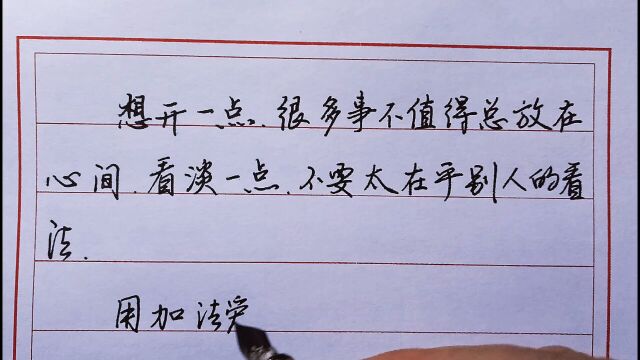 想开一点.很多事不值得总放在
心间.看淡一点.不要太在乎别人的看
法.
用加法爱